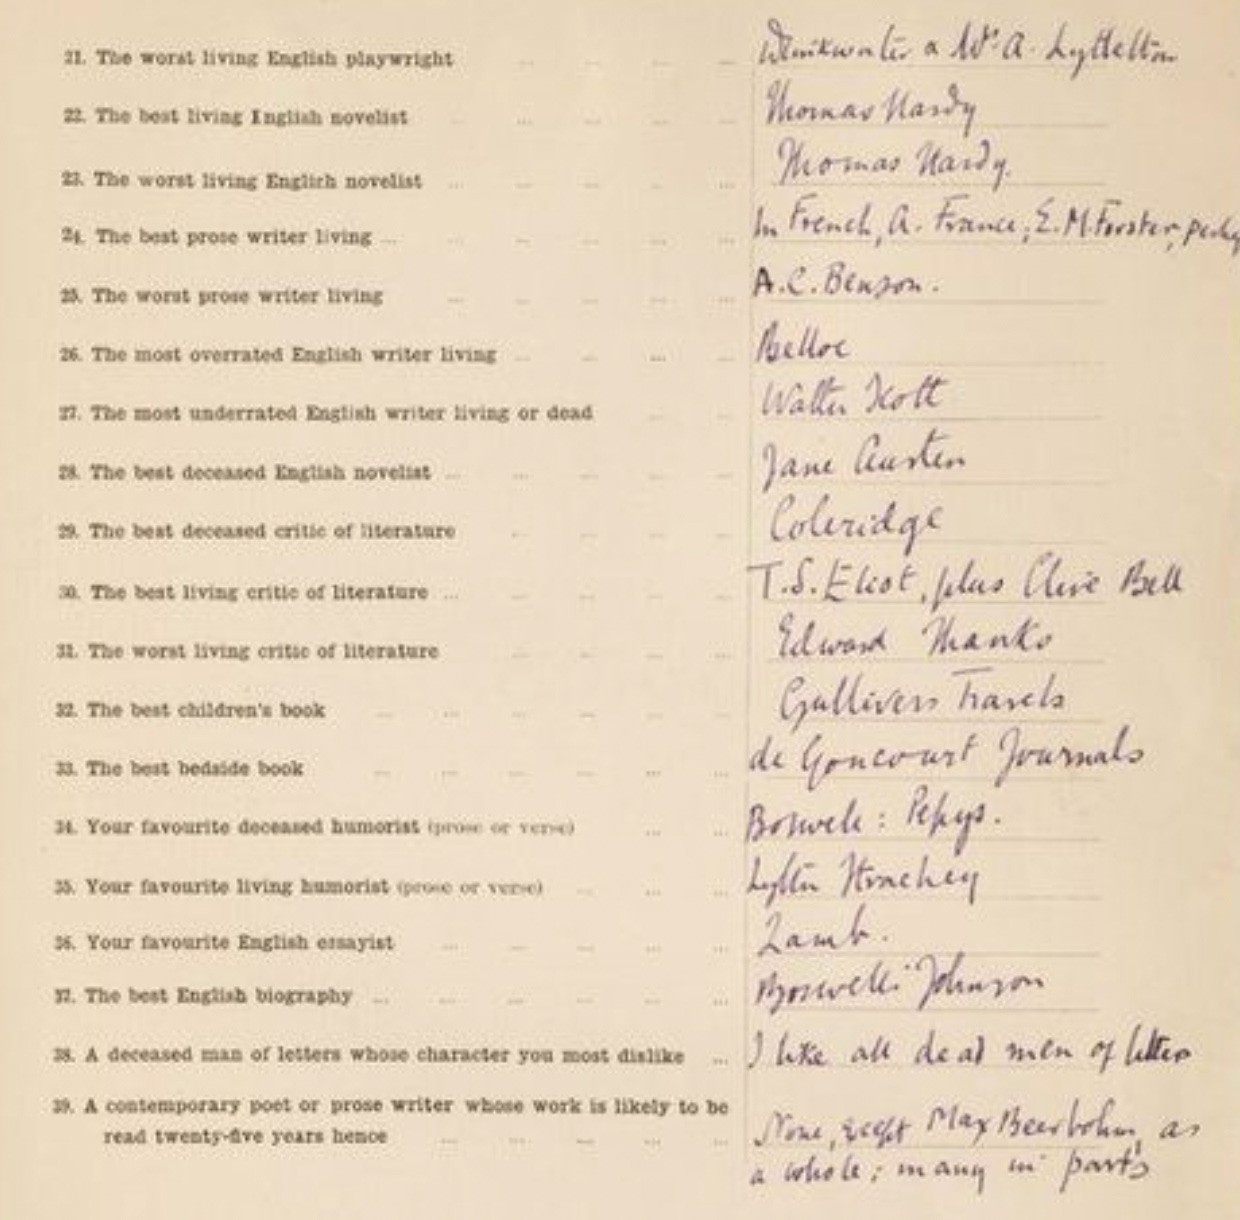 21. The worst living English playwright ... ... ... ... Drinkwater & Mrs A. Lyttelton
22. The best living English novelist ... ... ... ... Thomas Hardy
23. The worst living English novelist ... ... ... ... ... Thomas Hardy.
24. The best prose writer living ... ... ... ... ... ... In French, A. France; E.M. Forster,
25. The worst prose writer living ... ... ... ... ... A.C. Benson.
26. The most overrated English writer living ... ... ... ... Belloc
27. The most underrated English writer living or dead ... ... Walter Scott
28. The best deceased English novelist ... ... ... ... ... Jane Austen
29. The best deceased critic of literature ... ... ... ... Coleridge
30. The best living critic of literature ... ... ... ... ... T.S. Eliot, plus Clive Bell
31. The worst living critic of literature ... ... ... ... Edward Shanks
32. The best children's book ... ... ... ... ... ... Gullivers Travels
33. The best bedside book ... ... ... ... ... ... de Goncourt Journals
34. Your favourite deceased humorist (prose or verse) ... ... Boswell: Pepys.
35. Your favourite living humorist (prose or verse) ... ... ... Lytton Strachey
36. Your favourite English essayist ... ... ... ... ... Lamb.
37. The best English biography ... ... ... ... ... ... Boswell's Johnson
38. A deceased man of letters whose character you most dislike ... I like all dead men of letters
39. A contemporary poet or prose writer whose work is likely to be
read twenty-five years hence ... ... ... ... ... None, except Max Beerbohm, as
a whole; many in parts